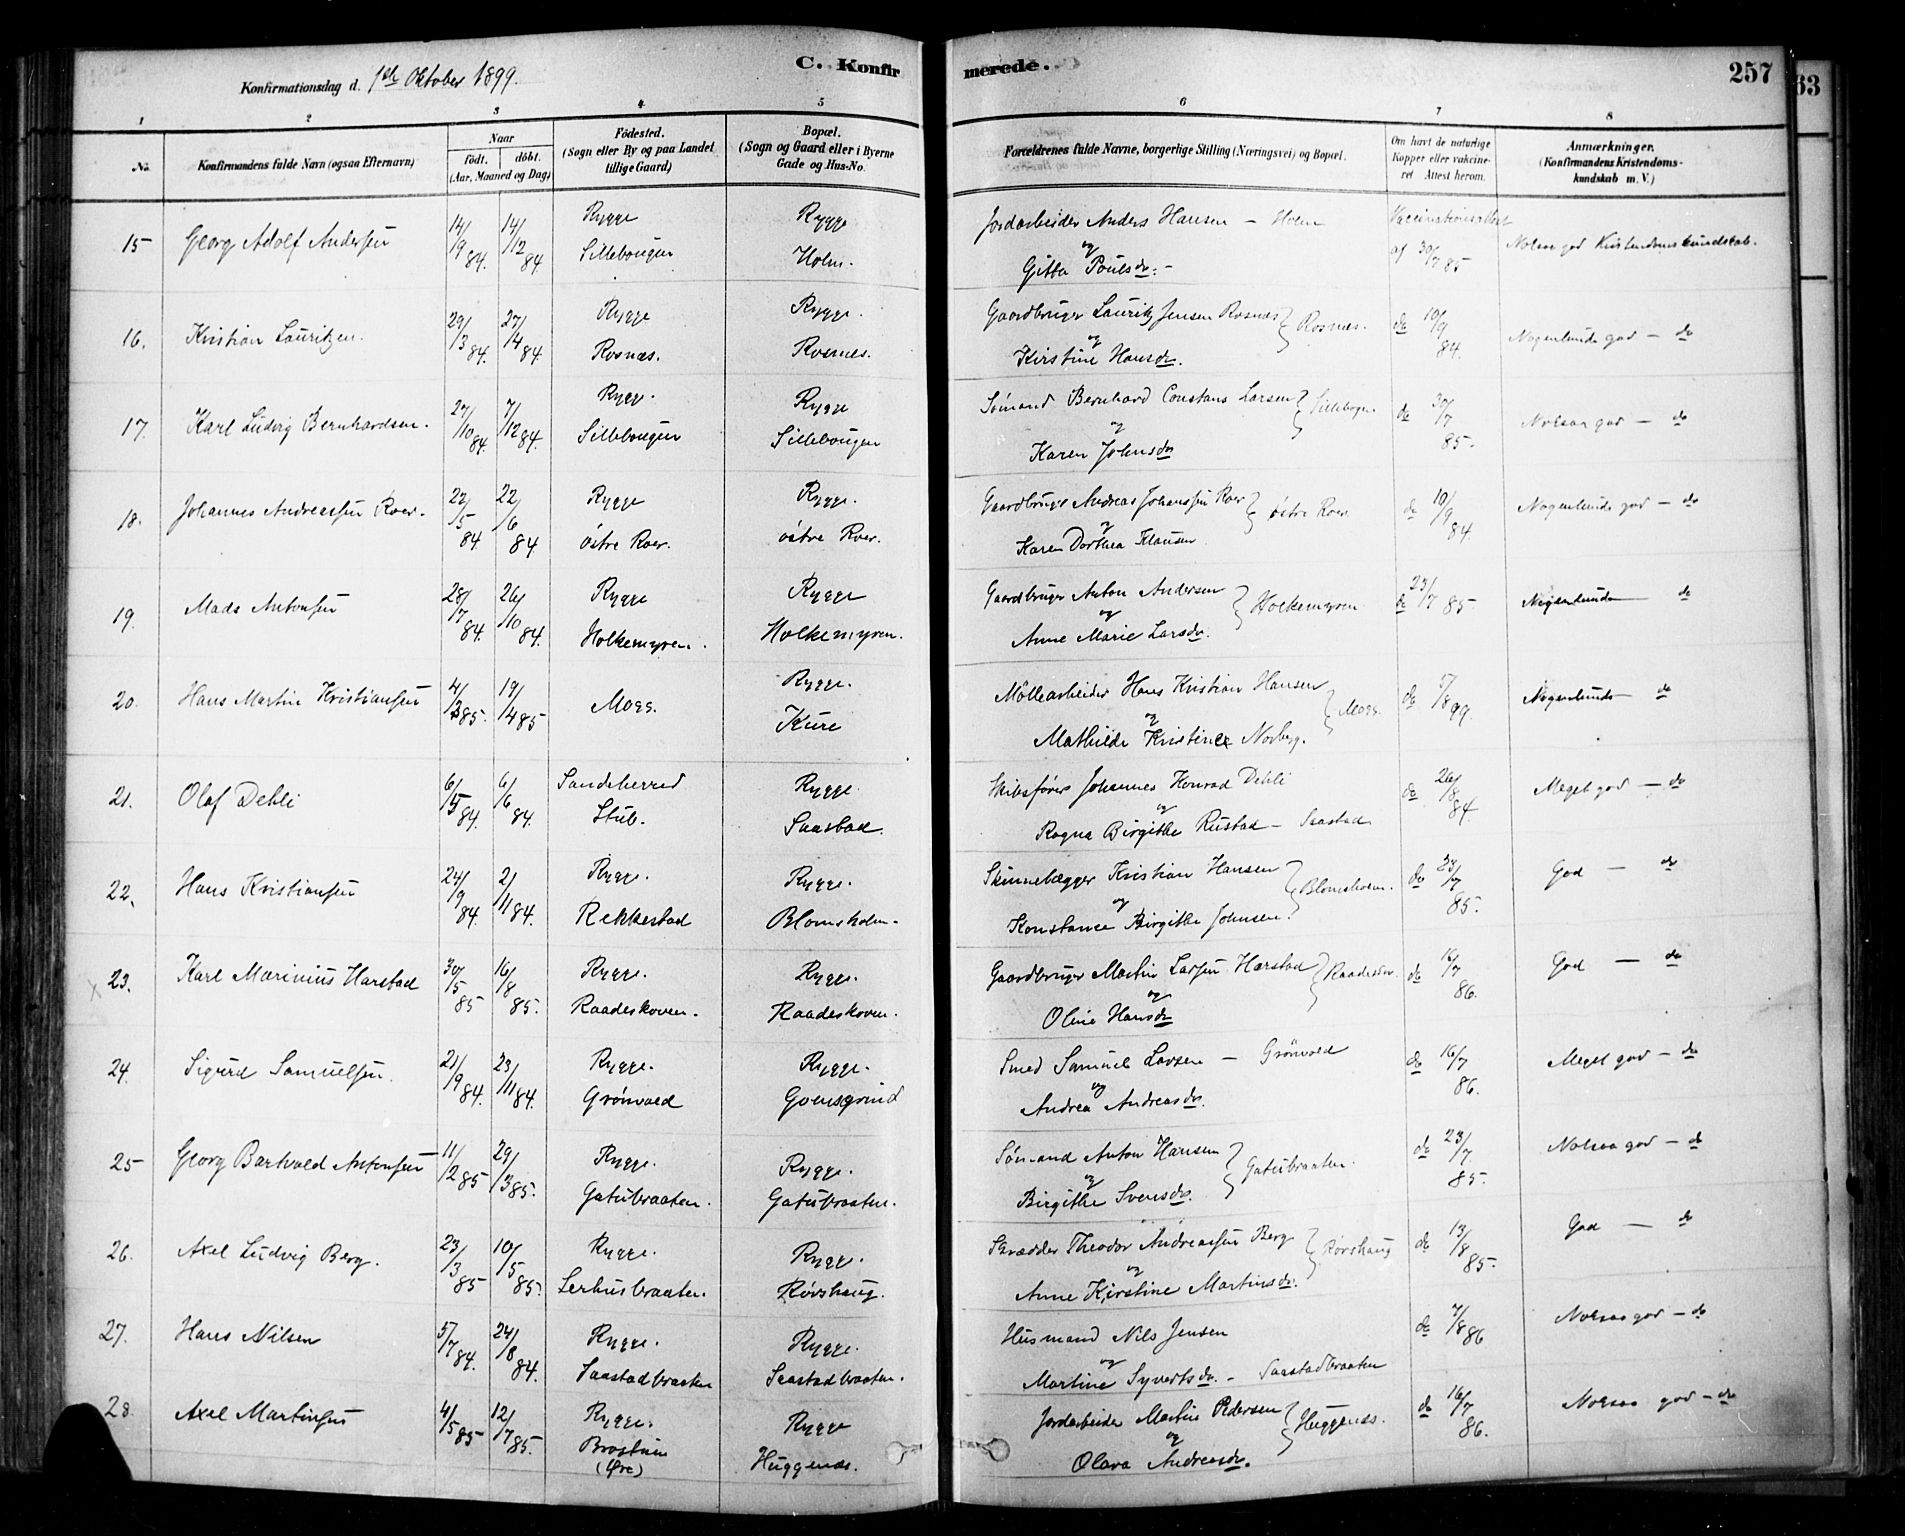 C. Konfirmerede.
257
63
Konfirmationsdag d. 1ste Oktober 1899.
1 2 3 4 5 6 7 8
No.
Konfirmandens fulde Navn (ogsaa Efternavn)
Naar
födt. döbt.
(Aar, Maaned og Dag)
Födested.
(Sogn eller By og paa Landet
tillige Gaard)
Bopæl.
(Sogn og Gaard eller i Byerne
Gade og Hus-No.
Forældrenes fulde Navne, borgerlige Stilling (Næringsvei) og Bopæl.
Om havt de naturlige
Kopper eller vakcine-
ret Attest herom.
Anmærkninger.
(Konfirmandens Kristendoms-
kundskab m. V.)
15 Georg Adolf Andersen 14/9 84. 14/12 84 Rygge Rygge Jordarbeider Anders Hansen – Holm Vaccinationsattest
Sillebougen Holm. og Gitta Poulsdr. – af 30/7 85 Nolsaa god Kristendomskundskab.
16. Kristian Lauritzen. 29/3 84. 27/4 84 Rygge Rygge. Gaardbruger Lauritz Jensen Rosnæs } Rosnæs. do 10/9 84. Nogenlunde god – do
Rosnæs. Rosnæs. og Kirstine Hansdr.
17. Karl Ludvig Bernhardsen. 27/10 84. 7/12 84. Rygge. Rygge Sømand Bernhard Constans Larsen } Sillebogen do 30/7 85. Nolsaa god – do
Sillebougen Sillebougen og Karen Johnsdr
18. Johannes Andreassen Roer. 22/5 84. 22/6 84 Rygge Rygge. Gaardbruger Andreas Johanssen Roer } østre Roer do 10/9 84. Nogenlunde god – do
østre Roer. østre Roer. og Karen Dorthea Klausen
19. Mads Antonsen 28/7 84. 26/10 84. Rygge Rygge Gaardbruger Anton Andersen } Holkemyren do 23/7 85. Nogenlunde do
Holkemyren. Holkemyren. og Anne Marie Larsdr.
20. Hans Martin Kristiansen 4/3 85. 19/4 85 Moss. Rygge. Möllearbeider Hans Kristian Hansen } Moss. do 5/8 99. Nogenlunde do
Kure og Mathilde Kristine Norberg.
21. Olaf Dehli 6/5 84. 6/6 84. Sandeherred Rygge. Skibsfører Johannes Konrad Dehli do 26/8 84. Meget god – do
Stub. Saastad. og Ragna Birgithe Rustad – Saastad
22. Hans Kristiansen 24/9 84. 2/11 84. Rygge. Rygge. Skinnelægger Kristian Hansen } Blomsholm. do 23/7 85. God – do
Rekkestad Blomsholm. og Konstance Birgithe Johnsen.
23. Karl Marinius Harstad 30/5 85 16/8 85. Rygge. Rygge. Gaardbruger Martin Larsen Harstad } Raadeskov. do 16/7 86. God – do
Raadeskoven. Raadeskoven. og Oline Hansdr
24. Sigurd Samuelsen. 21/9 84. 23/11 84. Rygge. Rygge. Smed Samuel Larsen – Grönvold do 16/7 86. Meget god – do
Grönvold Goensgrind og Andrea Andreasdr.
25 Georg Bartvald Antonsen 11/2 85 29/3 85. Rygge. Rygge. Sømand Anton Hansen } Gatubraaten. do 23/7 85. Nolsaa god – do
Gatubraaten. Gatubraaten. og Birgithe Svensdr.
26. Axel Ludvig Berg. 23/3 85 10/5 85. Rygge. Rygge. Skrædder Theodor Andreassen Berg } Rørshaug do 13/8 85. God – do
Lerhusbraaten. Rørshaug. og Anne Kirstine Martinsdr.
27. Hans Nilsen 5/7 84. 24/8 84. Rygge. Rygge. Husmand Nils Jensen do 7/8 86 Nolsaa god – do
Saastadbraaten Saastadbraaten. og Martine Syvertsdr. – Saastadbraaten
28. Axel Martinsen 4/5 85 12/7 85. Rygge. Rygge Jordarbeider Martin Pedersen } Huggenæs. do 16/7 86. Nolsaa god – do
(Øre) Huggenæs. og Olava Andreasdr.